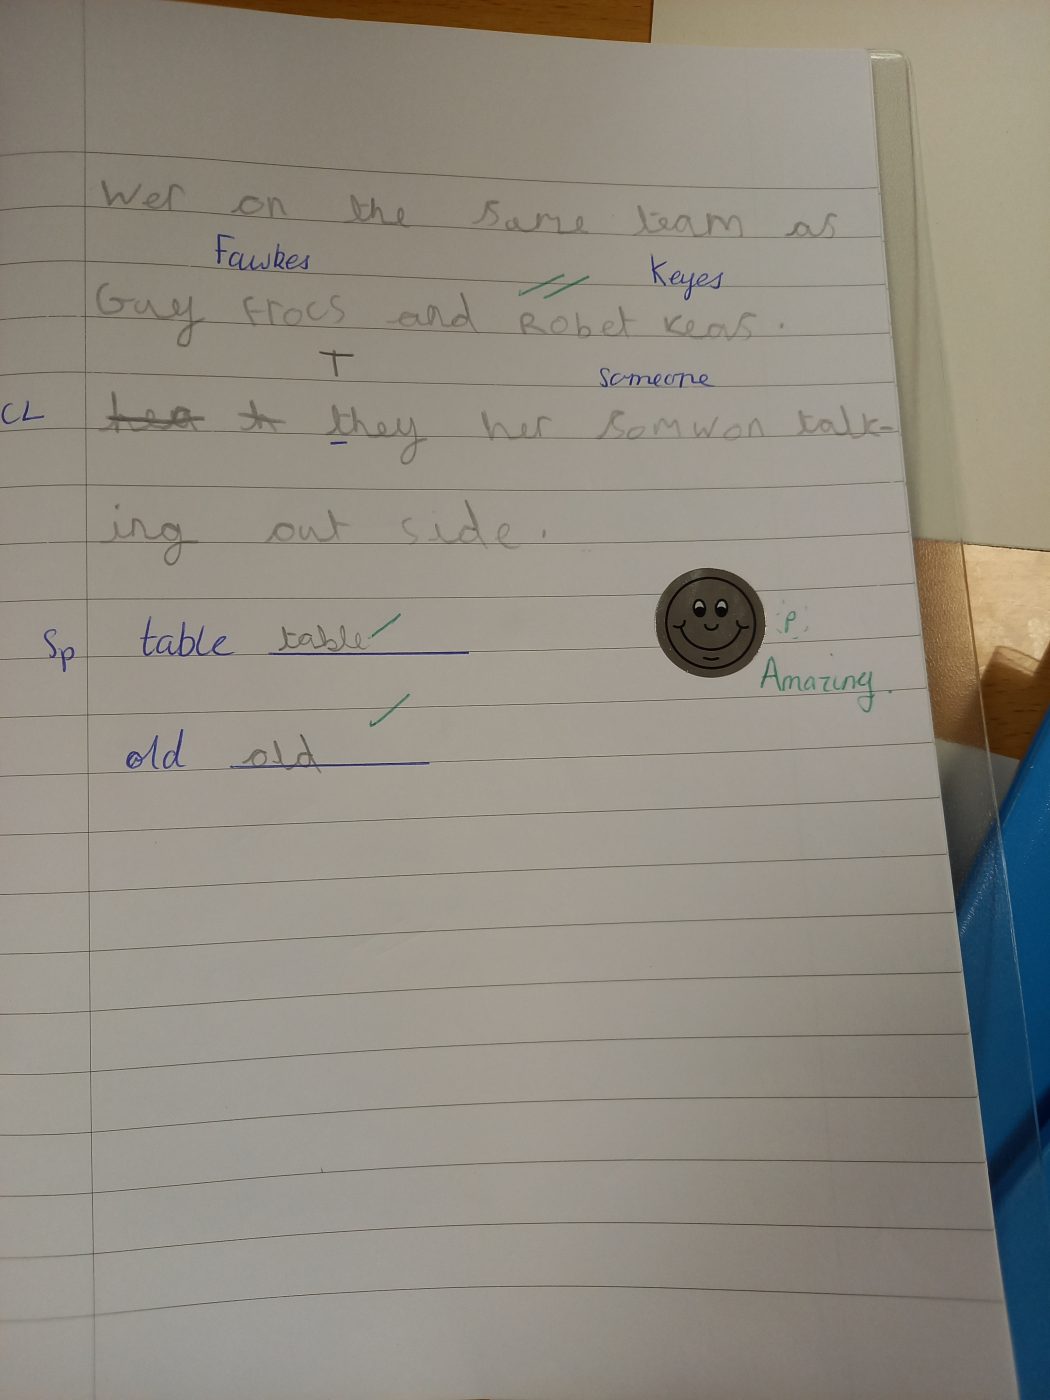 Wer on the same team as
Fawkes Keyes
Guy Frocs and Robet keas.
T someone
CL they her somwon talk-
ing out side.
Sp table table
:P:
Amazing.
old old